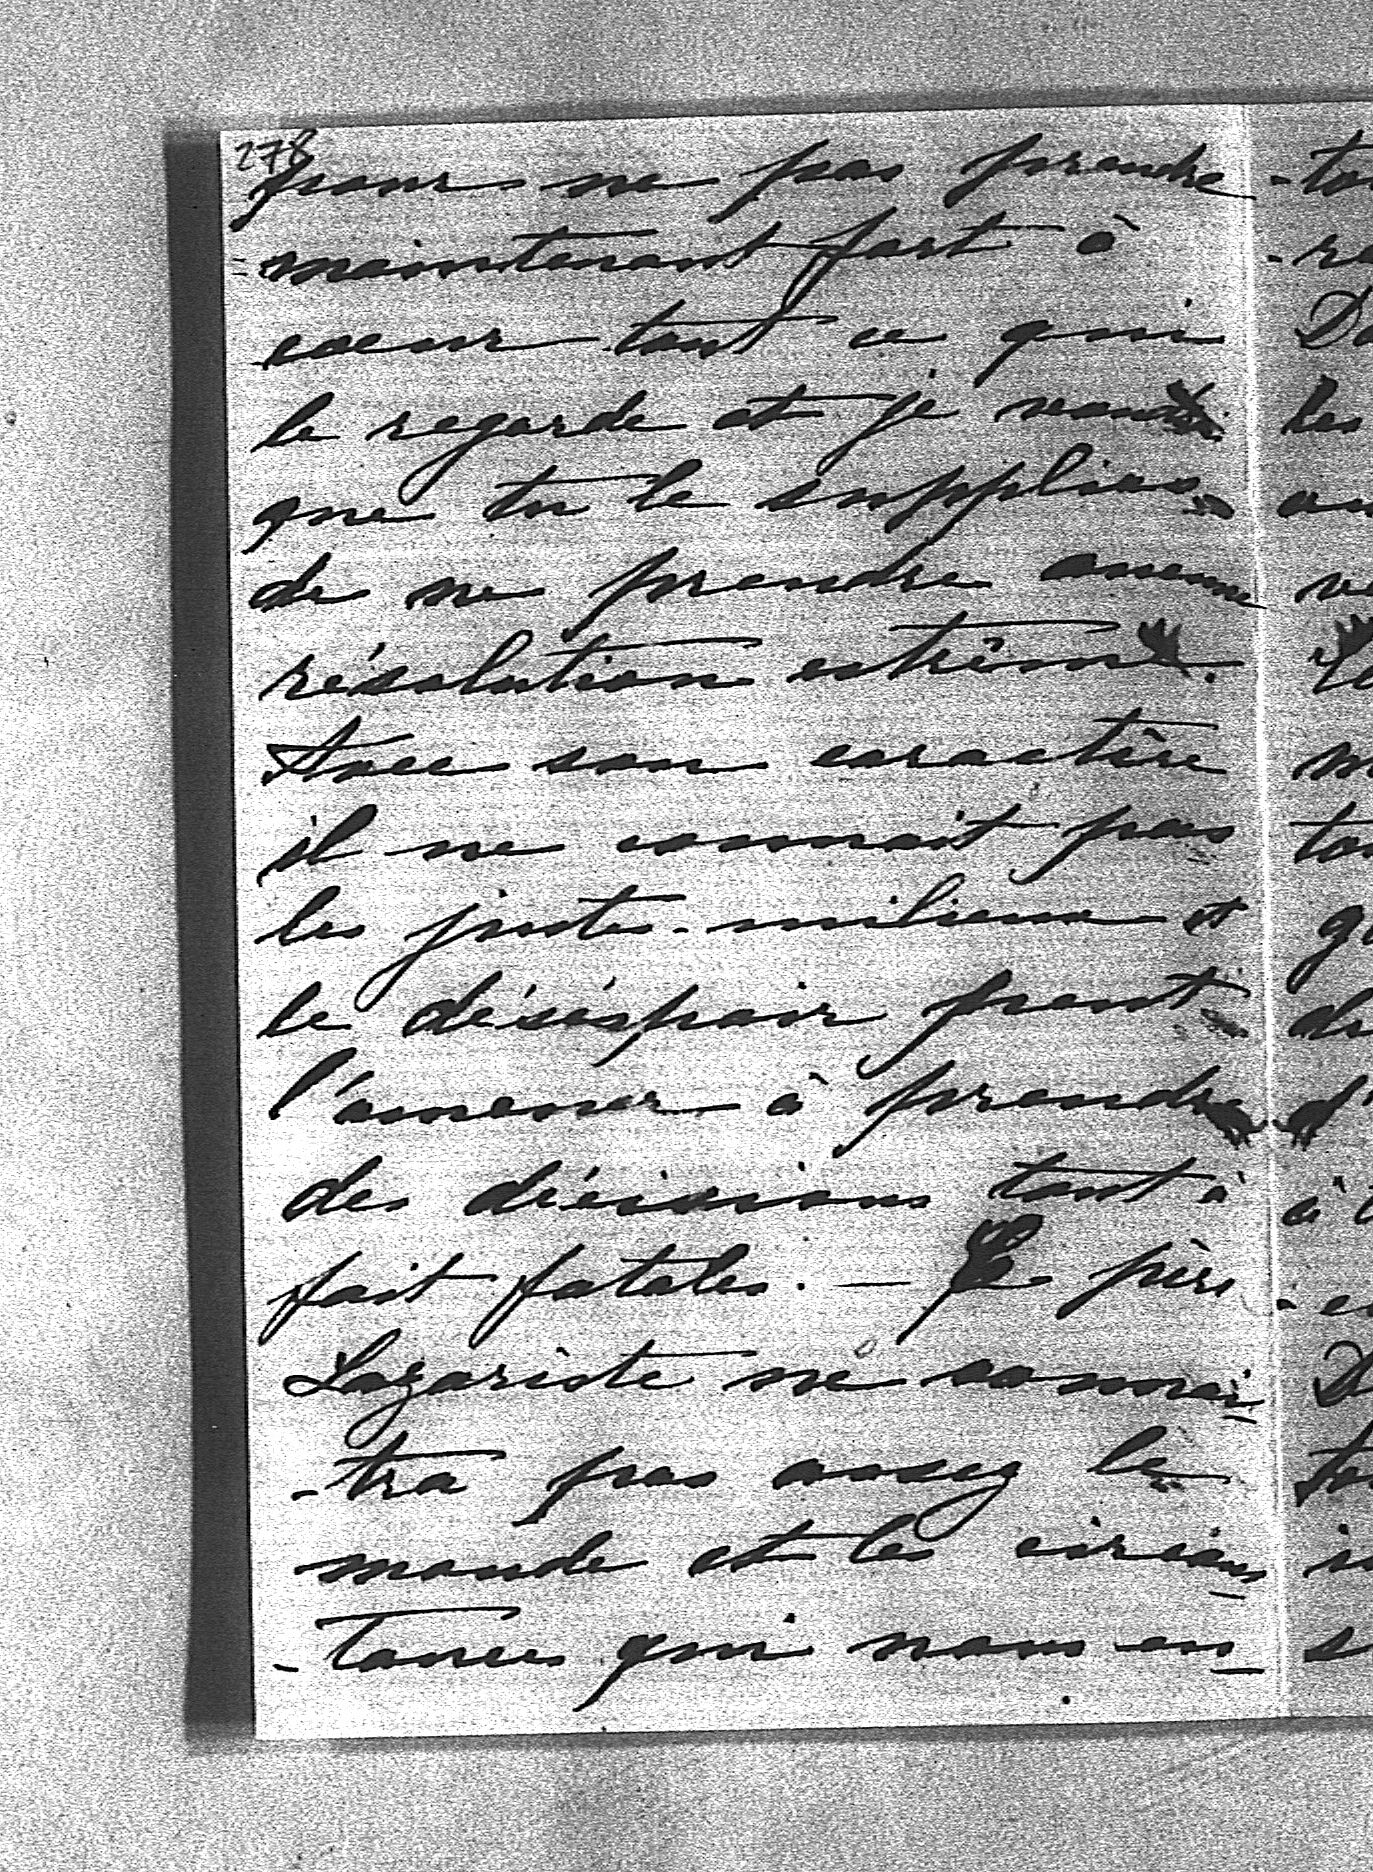 278
pour ne pas prendre
maintenant part à
coeur tout ce qui
le regarde et je veux
que tu le supplies
de ne prendre aucune
résolution extrême.
Avec son caractère
il ne connait pas
les justes-milieux et
le déséspoir peut
l'amener à prendre
des décisions tout à
fait fatales. — Le père
Lazariste ne connai
-tra pas assez le
monde et les circons
-tances qui nous en